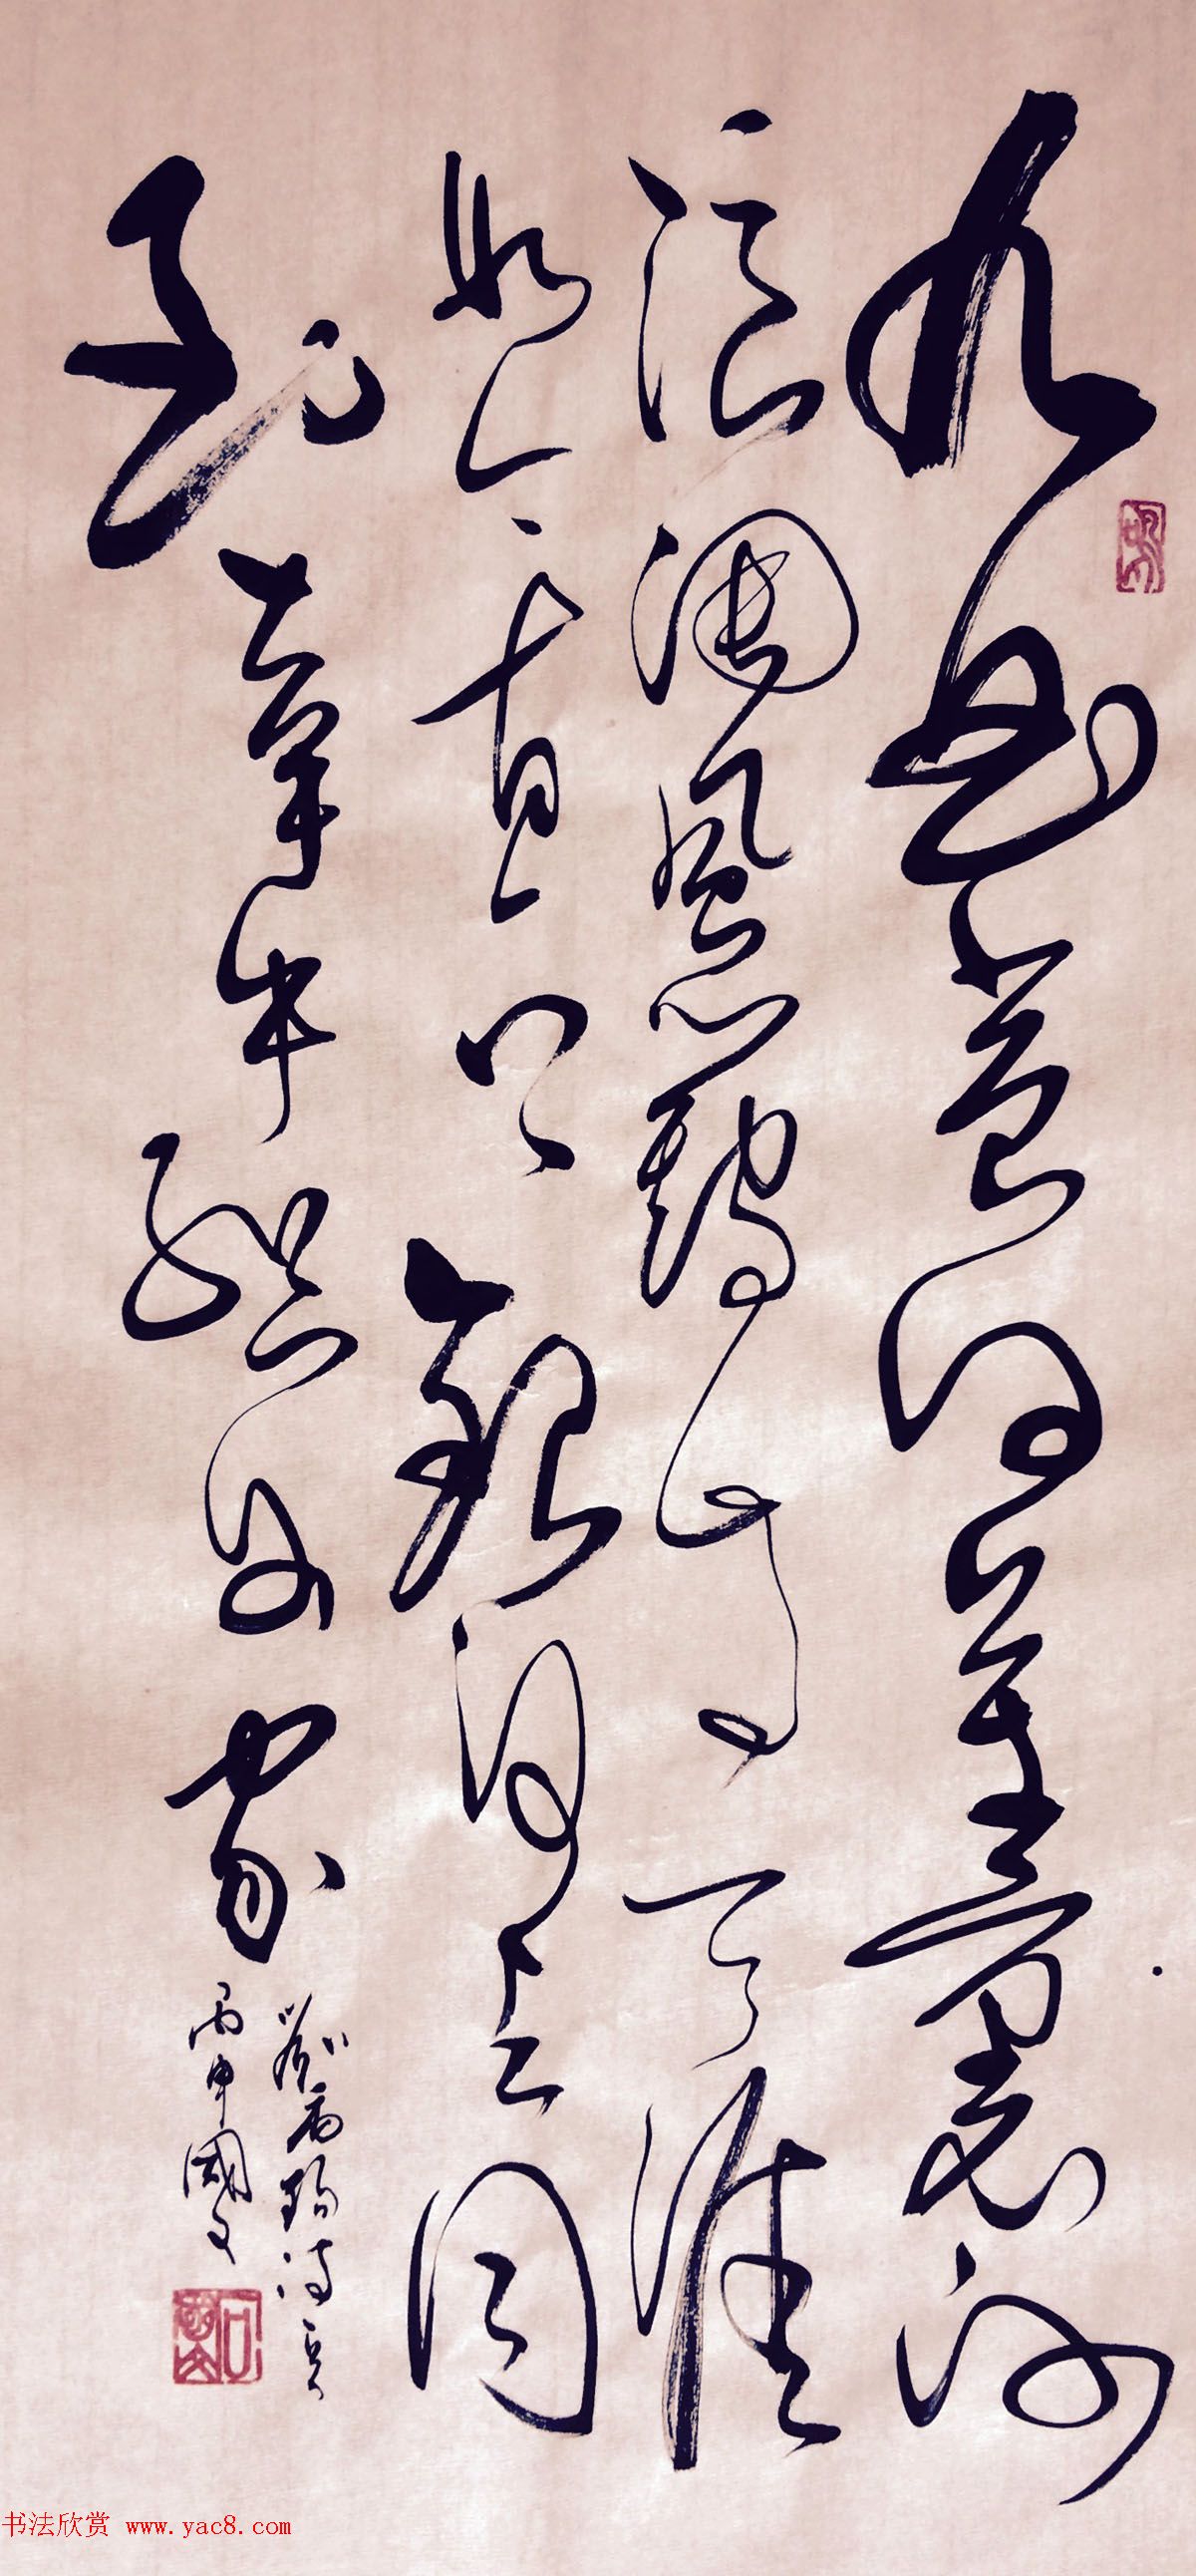 九曲黄河万里沙
浪淘风簸自天涯
如今直上银河去同
到牵牛织女家
刘禹锡诗
丙申国
书法欣赏 www.yac8.com